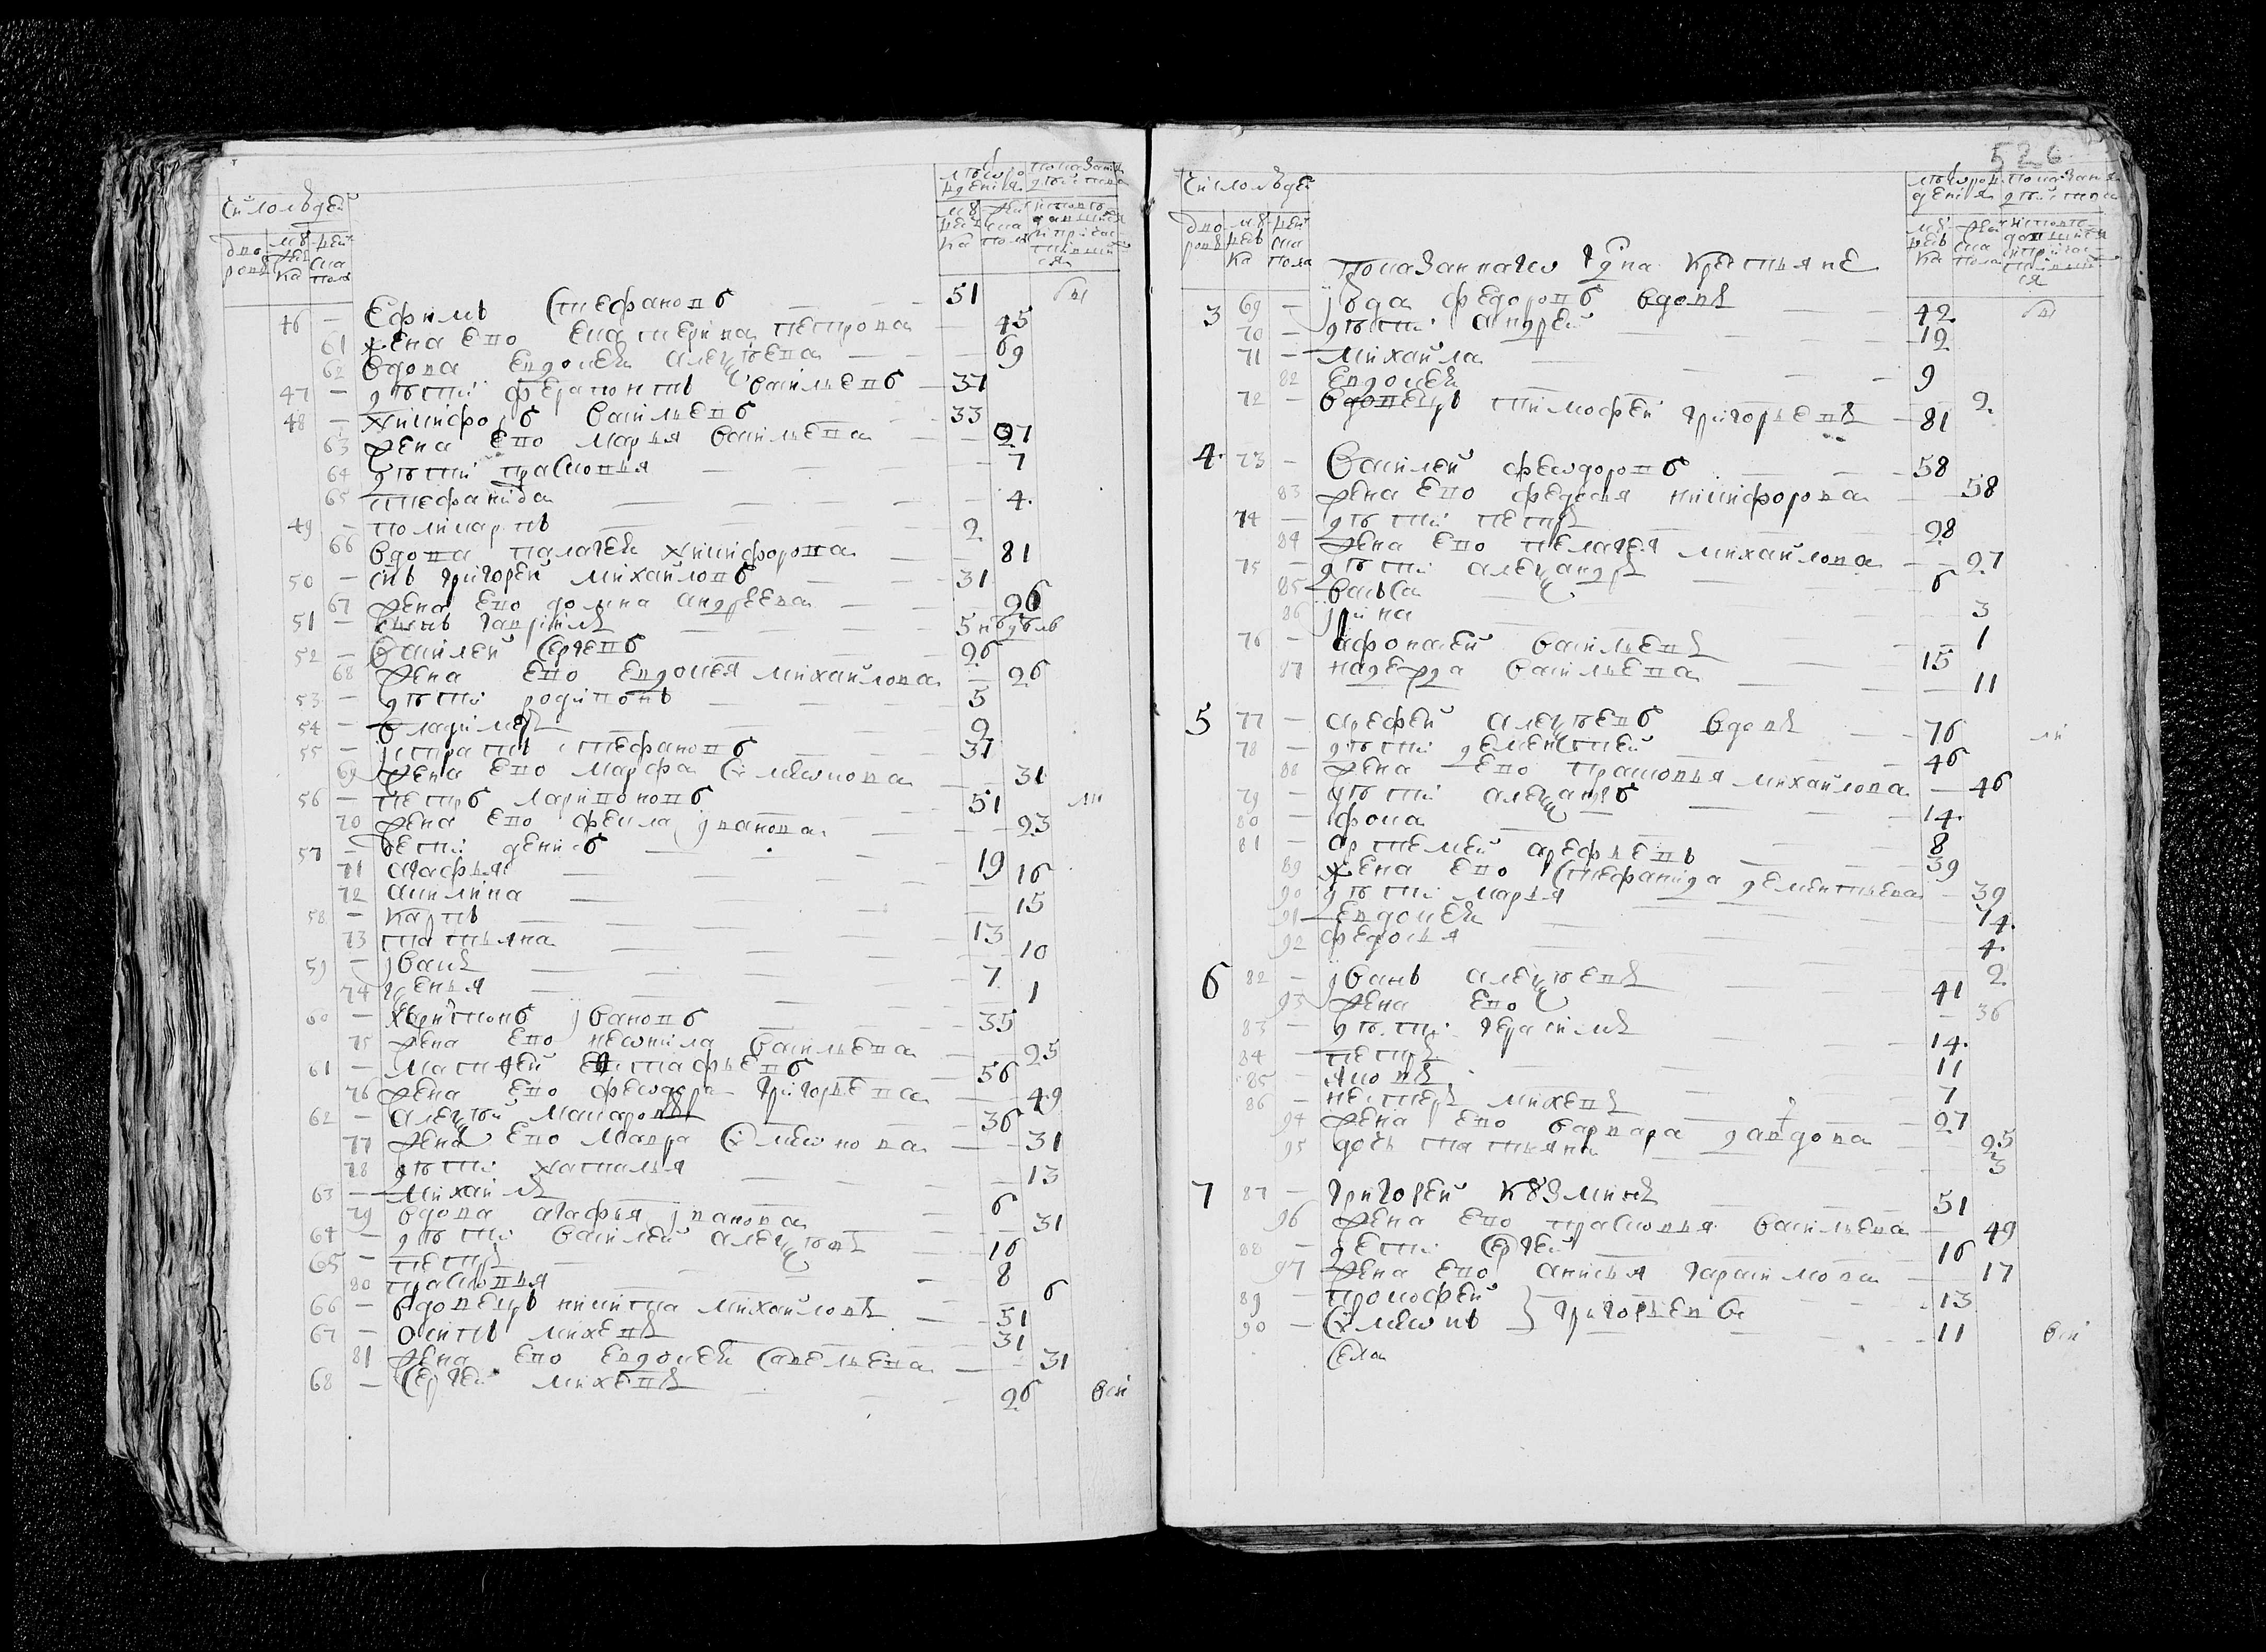 Число людей
дворов мужеска женска пола
лѣта рождения
показание дѣйства
мужеска женска пола исповѣдавшияся и причастившияся
46 — Ефимъ Стефановъ — 51 бы
61 жена ево Екатерина Петрова — 45
62 вдова Евдокея Алексѣева — 69
47 — дѣти Ферапонтъ Васильевъ — 37
48 — Никифоръ Васильевъ 33
63 жена ево Марья Васильева — 27
64 дѣти Прасковья — 7
65 Стефанида — 4
49 — Поликарпъ — 2
66 вдова Палагея Никифорова — 81
50 — сынъ Григорей Михайловъ — 31
67 жена ево Домна Андреева — 26
51 — сынъ Гаврилъ — 5 недѣль
52 — Василей Сергеевъ 26
68 жена ево Евдокея Михайлова — 26
53 — дѣти Родивонъ — 5
54 — Владимеръ — 2
55 — Истратъ Стефановъ 37
69 жена ево Марфа Симеонова — 31
56 — Петръ Ларивоновъ 51 ли
70 жена ево Фекла Иванова — 23
57 — дети Денисъ — 19
71 Агафья — 16
72 Акилина — 15
58 — Карпъ — 13
73 Татьяна — 10
59 — Иванъ — 7
74 Ксенья — 1
60 — Харитонъ Ивановъ — 35
75 жена ево Неонила Васильева — 25
61 — Матфей Евстафьевъ 56
76 жена ево Феодора Григорьева — 49
62 — Алексѣй Макаровъ 36
77 жена ево Мавра Симеонова — 31
78 дѣти Наталья — 13
63 — Михайлъ — 6
79 вдова Агафья Иванова — 31
64 — дѣти Василей Алексѣевъ — 16
65 — Петръ — 8
80 Прасковья — 6
66 — вдовецъ Никита Михайловъ — 51
67 — Осипъ Михеевъ — 31
81 жена ево Евдокея Савельева — 31
68 — Сергей Михеевъ — 26 вси
526
Число людей
дворов мужеска женска пола
лѣта рождения показание дѣйства
мужеска женска пола исповѣдавшияся и причастившияся
Показаннаго села крестьяне
3 69 — Iуда Федоровъ вдовъ — 42 бы
70 — дѣти Андрей — 12
71 — Михайла — 9
82 Евдокея — 2
72 — вдовецъ Тимофей Григорьевъ — 81
4 73 — Василей Феодоровъ — 58
83 жена ево Федосья Никифорова — 58
74 — дѣти Петръ 28
84 жена ево Пелагея Михайлова — 27
75 — дѣти Александръ — 6
85 Васса — 3
86 Ирина — 1
76 — Афонасей Васильевъ 15
87 Надежда Васильева — 11
5 77 — Арефей Алексѣевъ вдовъ — 76 ли
78 — дѣти Дементей 46
88 жена ево Прасковья Михайлова — 46
79 — дѣти Александръ — 14
80 — Фока — 8
81 — Артемей Арефьевъ — 39
89 жена ево Стефанида Дементьева — 39
90 дѣти Марья — 14
91 Евдокея — 4
92 Федосья — 2
6 82 — Иванъ Алексѣевъ 41
93 жена ево — 36
83 — дѣти Герасимъ 14
84 — Петръ 11
85 — Яковъ 7
86 — Нестеръ Михеевъ 27
94 жена ево Варвара Давдова — 25
95 дочь Татьяна — 3
7 87 — Григорей Кузминъ — 51
96 жена ево Прасковья Васильева — 49
88 — дети Сергей — 16
97 жена ево Анисья Гарасимова — 17
89 — Прокофей
90 — Симеонъ } Григорьевы — 13
— 11 вси
Села